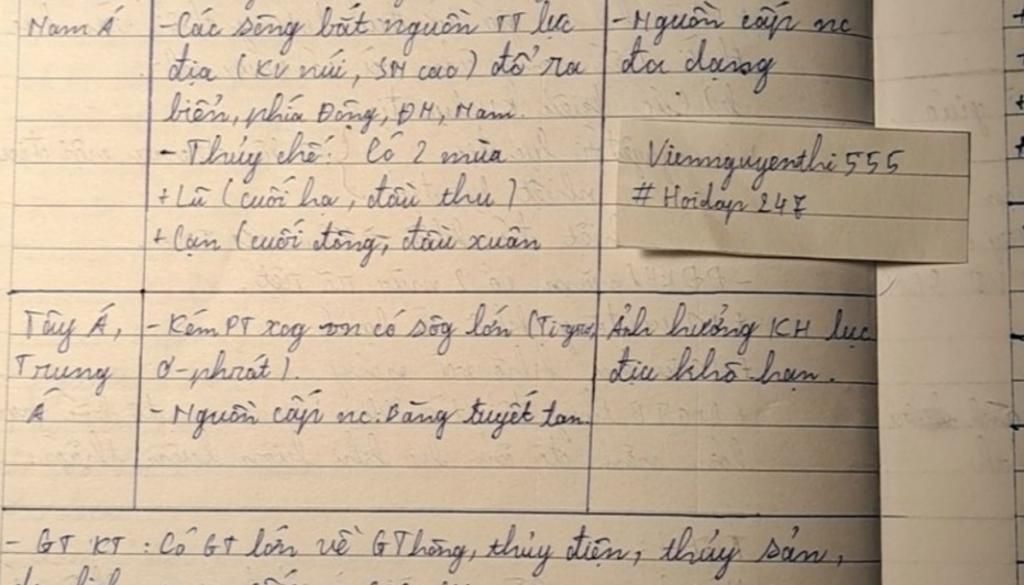 Nam Á
- Các sông bắt nguồn TT lục
địa (KV núi, SN cao) đổ ra
biển, phía Đông, ĐN, Nam.
- Thủy chế: Có 2 mùa
+ Lũ (cuối hạ, đầu thu)
+ Cạn (cuối đông, đầu xuân
- Nguồn cấp nc
đa dạng
Viennguyenthi 555
# Hoidap 247
Tây Á,
Trung
Á
- Kém PT xog vn có sôg lớn (Ti-grơ,
Ơ-phrát).
- Nguồn cấp nc: Băng tuyết tan.
Ảnh hưởng KH lục
địa khô hạn.
- GT KT: Có GT lớn về GThông, thủy điện, thủy sản,